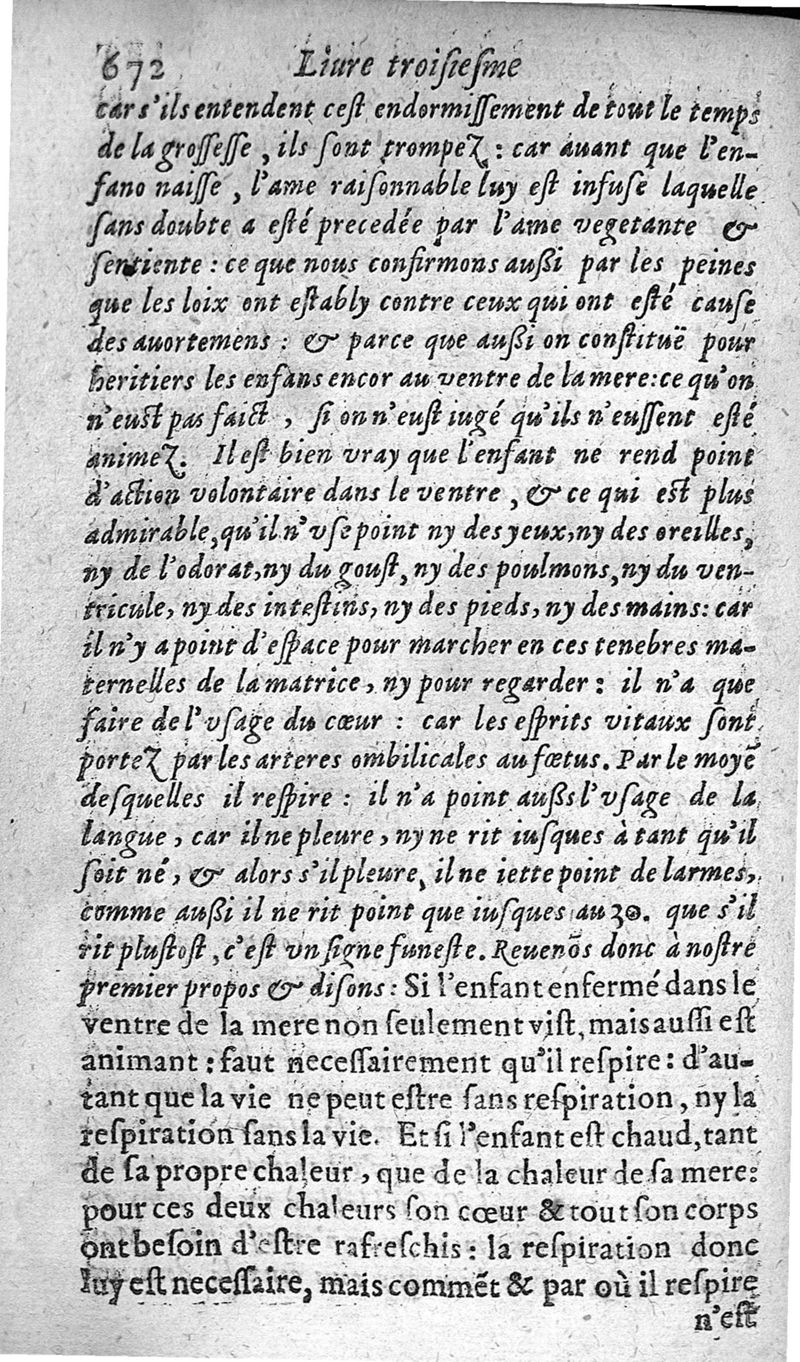 672 Liure troisiesme
car s'ils entendent cest endormissement de tout le temps
de la grossesse, ils sont trompez : car auant que l'en-
fano naisse, l'ame raisonnable luy est infuse laquelle
sans doubte a esté precedée par l'ame vegetante &
sentiente : ce que nous confirmons aussi par les peines
que les loix ont estably contre ceux qui ont esté cause
des auortemens : & parce que aussi on constituë pour
heritiers les enfans encor au ventre de la mere : ce qu'on
n'eust pas faict, si on n'eust iugé qu'ils n'eussent esté
animez. Il est bien vray que l'enfant ne rend point
d'action volontaire dans le ventre, & ce qui est plus
admirable, qu'il n'vse point ny des yeux, ny des oreilles,
ny de l'odorat, ny du goust, ny des poulmons, ny du ven-
tricule, ny des intestins, ny des pieds, ny des mains : car
il n'y a point d'espace pour marcher en ces tenebres ma-
ternelles de la matrice, ny pour regarder : il n'a que
faire de l'vsage du cœur : car les esprits vitaux sont
portez par les arteres ombilicales au fœtus. Par le moyẽ
desquelles il respire : il n'a point aussi l'vsage de la
langue, car il ne pleure, ny ne rit iusques à tant qu'il
soit né, & alors s'il pleure, il ne iette point de larmes,
comme aussi il ne rit point que iusques au 30. que s'il
rit plustost, c'est vn signe funeste. Reuenõs donc à nostre
premier propos & disons : Si l'enfant enfermé dans le
ventre de la mere non seulement vist, mais aussi est
animant : faut necessairement qu'il respire : d'au-
tant que la vie ne peut estre sans respiration, ny la
respiration sans la vie. Et si l'enfant est chaud, tant
de sa propre chaleur, que de la chaleur de sa mere :
pour ces deux chaleurs son cœur & tout son corps
ont besoin d'estre rafreschis : la respiration donc
luy est necessaire, mais commẽt & par où il respire
n'est